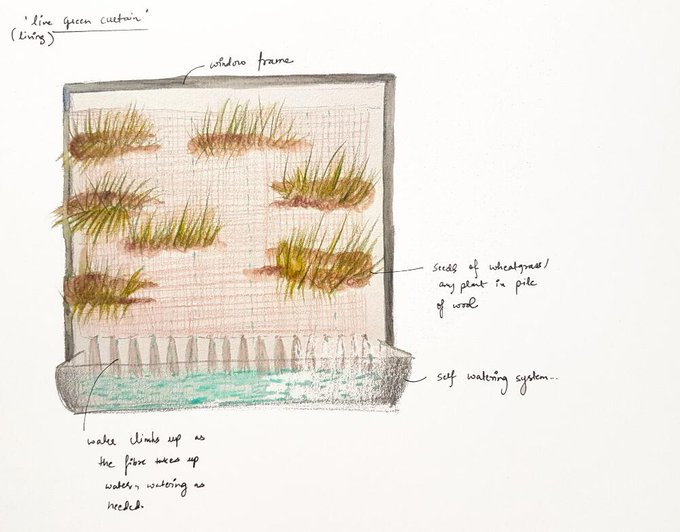 "live green curtain"
(living)
window frame
seeds of wheatgrass/
any plant in pile
of wool
self watering system...
water climbs up as
the fibre takes up
water, watering as
needed.